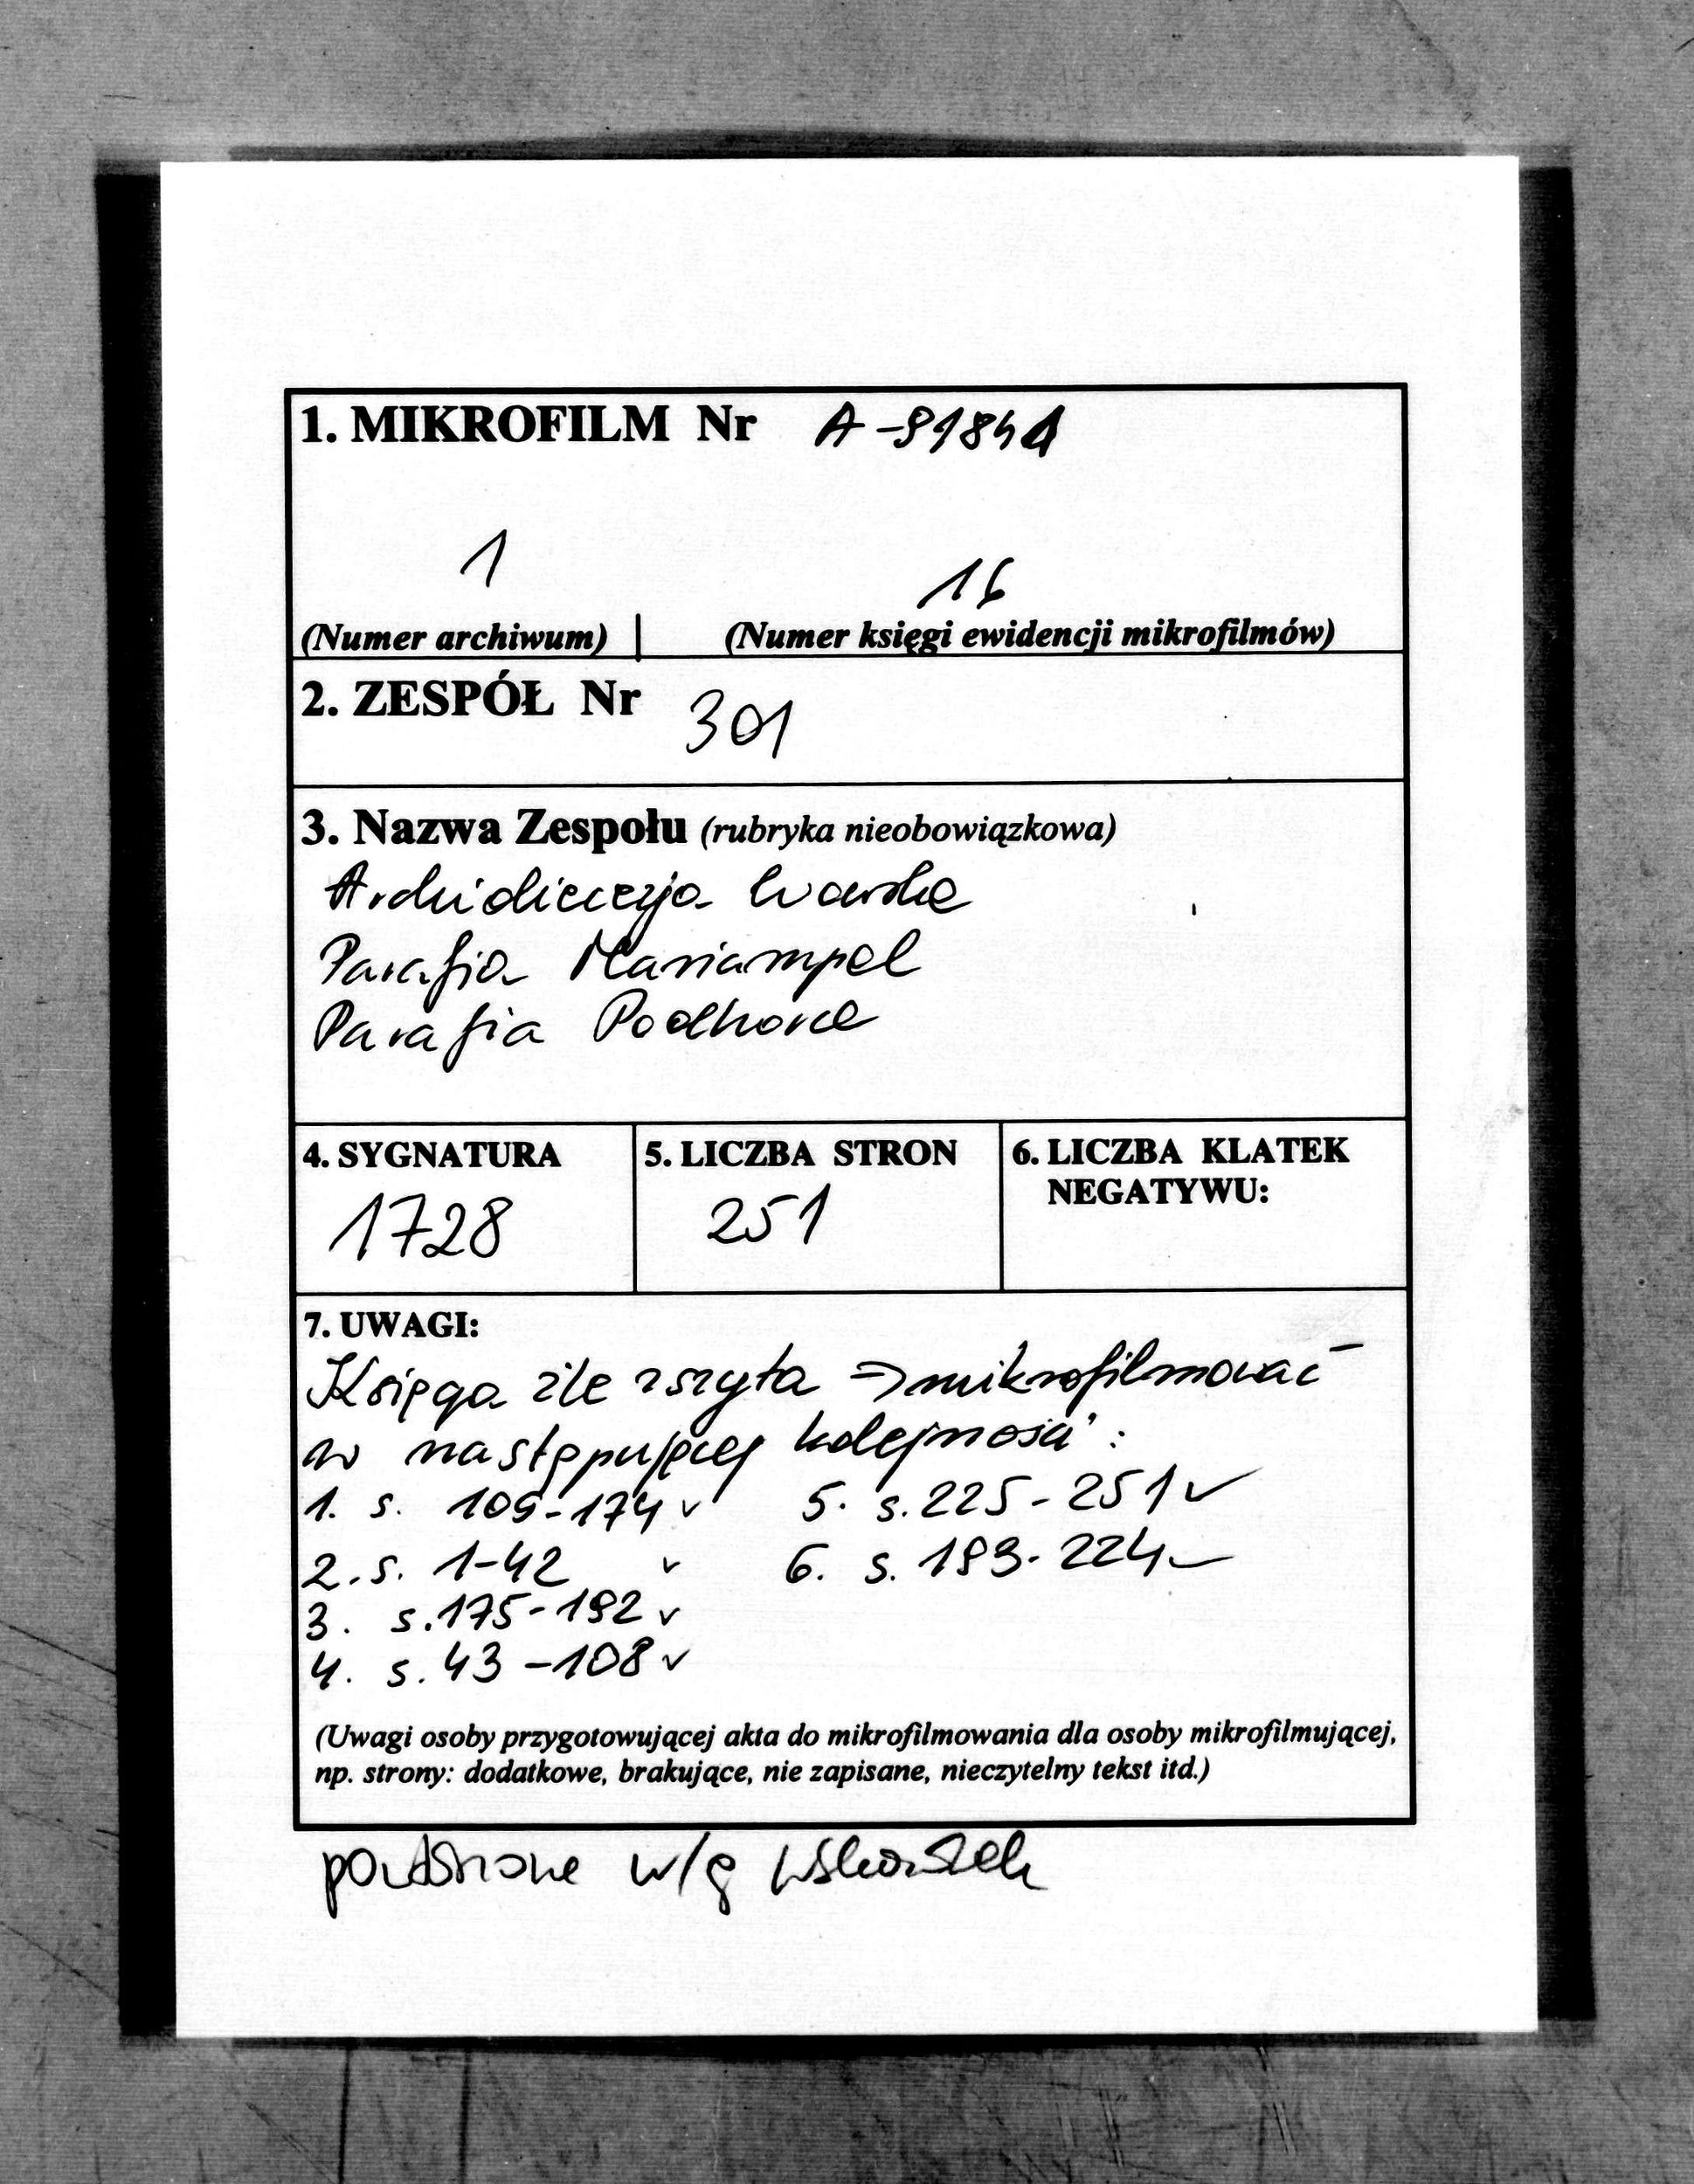 1. MIKROFILM Nr A-91841
1 16
(Numer archiwum) (Numer księgi ewidencji mikrofilmów)
2. ZESPÓŁ Nr 301
3. Nazwa Zespołu (rubryka nieobowiązkowa)
Archidiecezja
Parafia Mariampol
Parafia
4. SYGNATURA 5. LICZBA STRON 6. LICZBA KLATEK
NEGATYWU:
1728 251
7. UWAGI:
Księga źle zszyta => mikrofilmować
w następującej kolejności:
1. s. 109-174 v 5. s. 225-251 v
2. s. 1-42 v 6. s. 193-224 v
3. s. 175-192 v
4. s. 43-108 v
(Uwagi osoby przygotowującej akta do mikrofilmowania dla osoby mikrofilmującej,
np. strony: dodatkowe, brakujące, nie zapisane, nieczytelny tekst itd.)
w/g